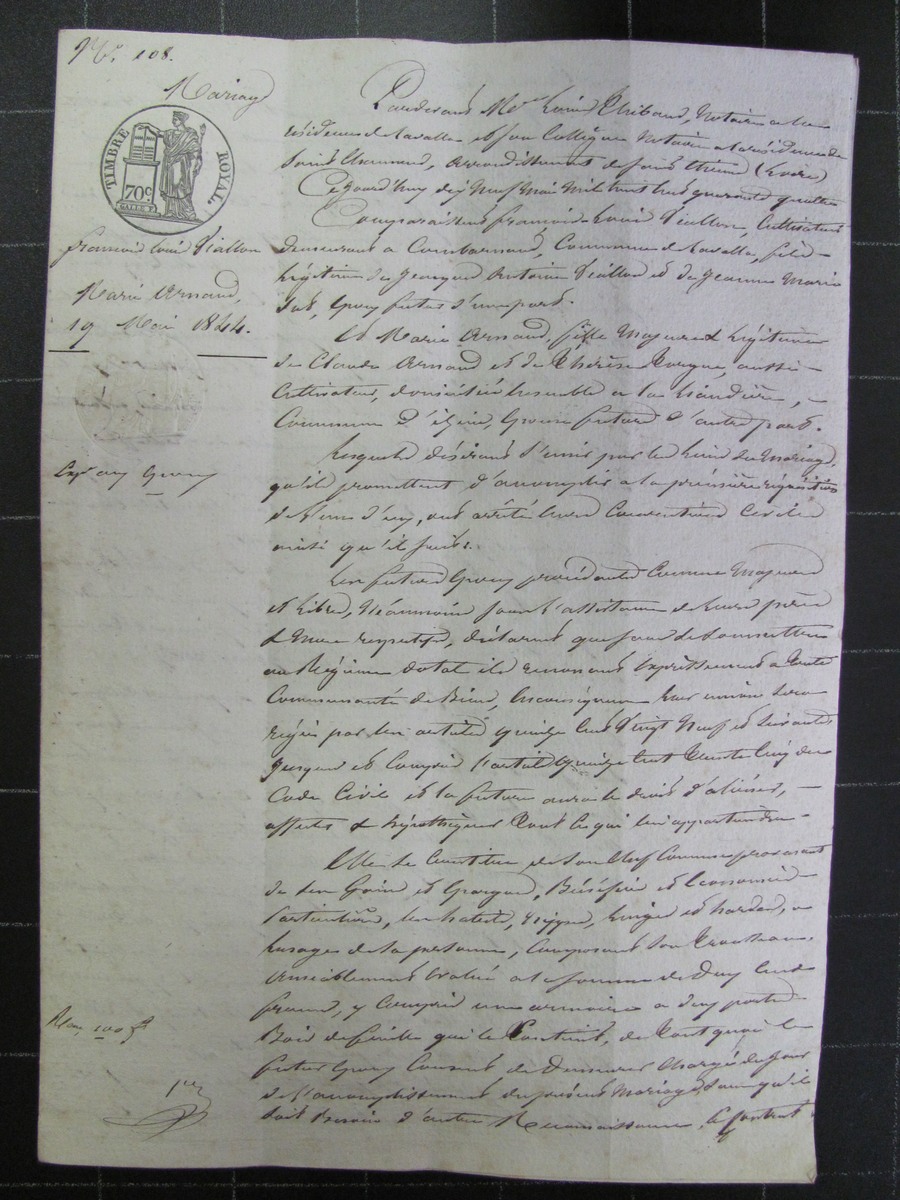 No. 108.
Mariage
TIMBRE ROYAL.
70 c.
françois Louis Viallon
Marie Arnaud,
19 Mai 1844.
Pardevant Me Louis Thibaud, Notaire a la
résidence de Lavalla et son Collègue Notaire a la résidence de
Saint Chamond, arrondissement de Saint Etienne (Loire)
Ce jourd'huy dix Neuf Mai Mil huit cent quarante quatre
Comparaissent françois Louis Viallon, Cultivateur
demeurant a Combarnaud, Commune de Lavalla, fils
Légitime de Jacques Antoine Viallon et de Jeanne Marie
Epoux futur d'une part.
Et Marie Arnaud, fille Majeure et Légitime
de Claude Arnaud et de Thérèse aussi
Cultivateurs, domiciliés ensemble a
Commune D' Epouse future d'autre part.
Lesquels désirant s'unir par les liens du Mariage,
qu'ils promettent d'accomplir a la première réquisition
de l'un d'eux, ont arrêté leurs Conventions Civiles
ainsi qu'il suit:
Les futurs Epoux procédants Comme Majeurs
et Libres, Néanmoins sous l'assistance de leurs père
& Mère respectifs, déclarent que pour se soumettre
au Régime dotal ils renoncent Expressément a toute
Communauté de Biens, leur union sera
régie par les articles quinze Cent Vingt Neuf et suivants
jusques et Compris l'article quinze Cent Trente Cinq du
Code Civil et la future aura le droit d'aliéner,
affecter & hypothéquer Tout Ce qui lui appartiendra.
Elle se Constitue de Son Chef Comme provenant
de ses Gains et Epargnes, Bénéfices et Economies
particulières, les habits, nippes, linges et hardes, a
lusage de sa personne, Composant Son Trousseau,
amiablement évalué a la somme de Deux Cents
francs, y Compris une armoire a deux portes
Bois de qui le Contient, de Tout quoi le
futur Epoux Consent de Demeurer Chargé du jour
de l'accomplissement du présent Mariage, sans qu'il
soit Besoin d'autre Reconnaissance, le présent